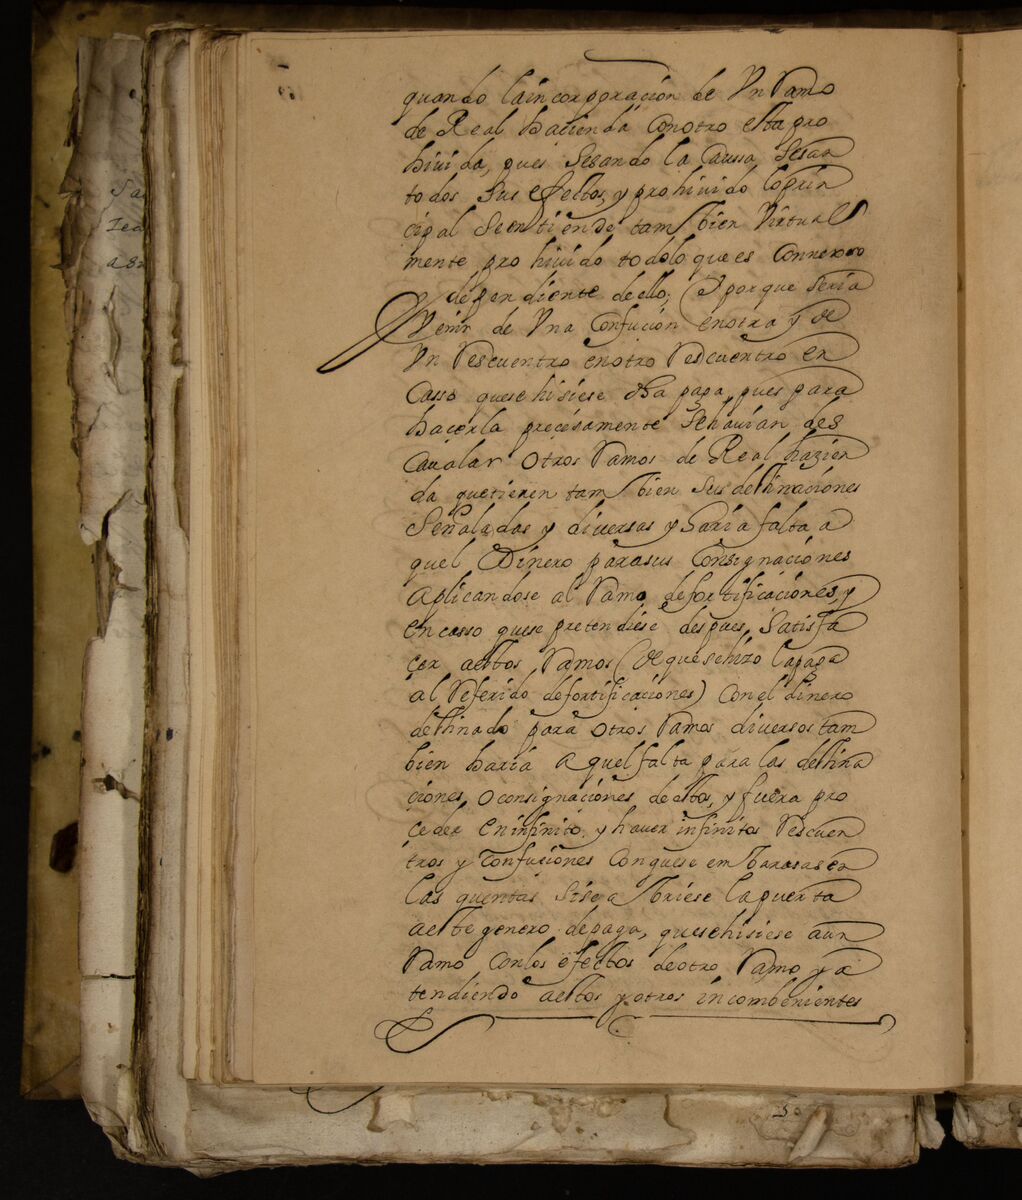 quando laincorporacion de Vn Ramo
de Real hacienda Conotro esta pro
hiuida, pues Sesando la Caussa, Sesan
todos sus efectos, y prohiuido loprin
cipal Seentiende tambien Virtual
mente prohiuido todoloquees Connexo o
dependiente deello; Yporque seria
Venir de Vna Confucion enotra y de
Vn Rescuentro enotro Rescuentro en
Casso quesehisiese dha paga, pues para
hacerla precisamente Sehauian des
Caualar otros Ramos de Real hazien
da quetienen tambien Sus destinaciones
Señaladas y diversas y haria falta a
quel Dinero parasus Consignaciones
Aplicandose al Ramo defortificaciones, y
en casso quese pretendiese despues, Satisfa
cer aestos Ramos (de quesehizo lapaga
al Referido defortificaciones) Con el dinero
destinado para otros Ramos diversos tam
bien haria aquel falta para las destina
ciones, o consignaciones deestos, y fuera pro
ceder en infinito, y hauer infinitos Rescuen
tros y Confuciones Conquese embarasasen
las quentas Sise abriese lapuerta
aeste genero depaga, quesehisiese aun
Ramo Conlos efectos deotro Ramo y a
tendiendo aestos y otros incombenientes
Sa
a